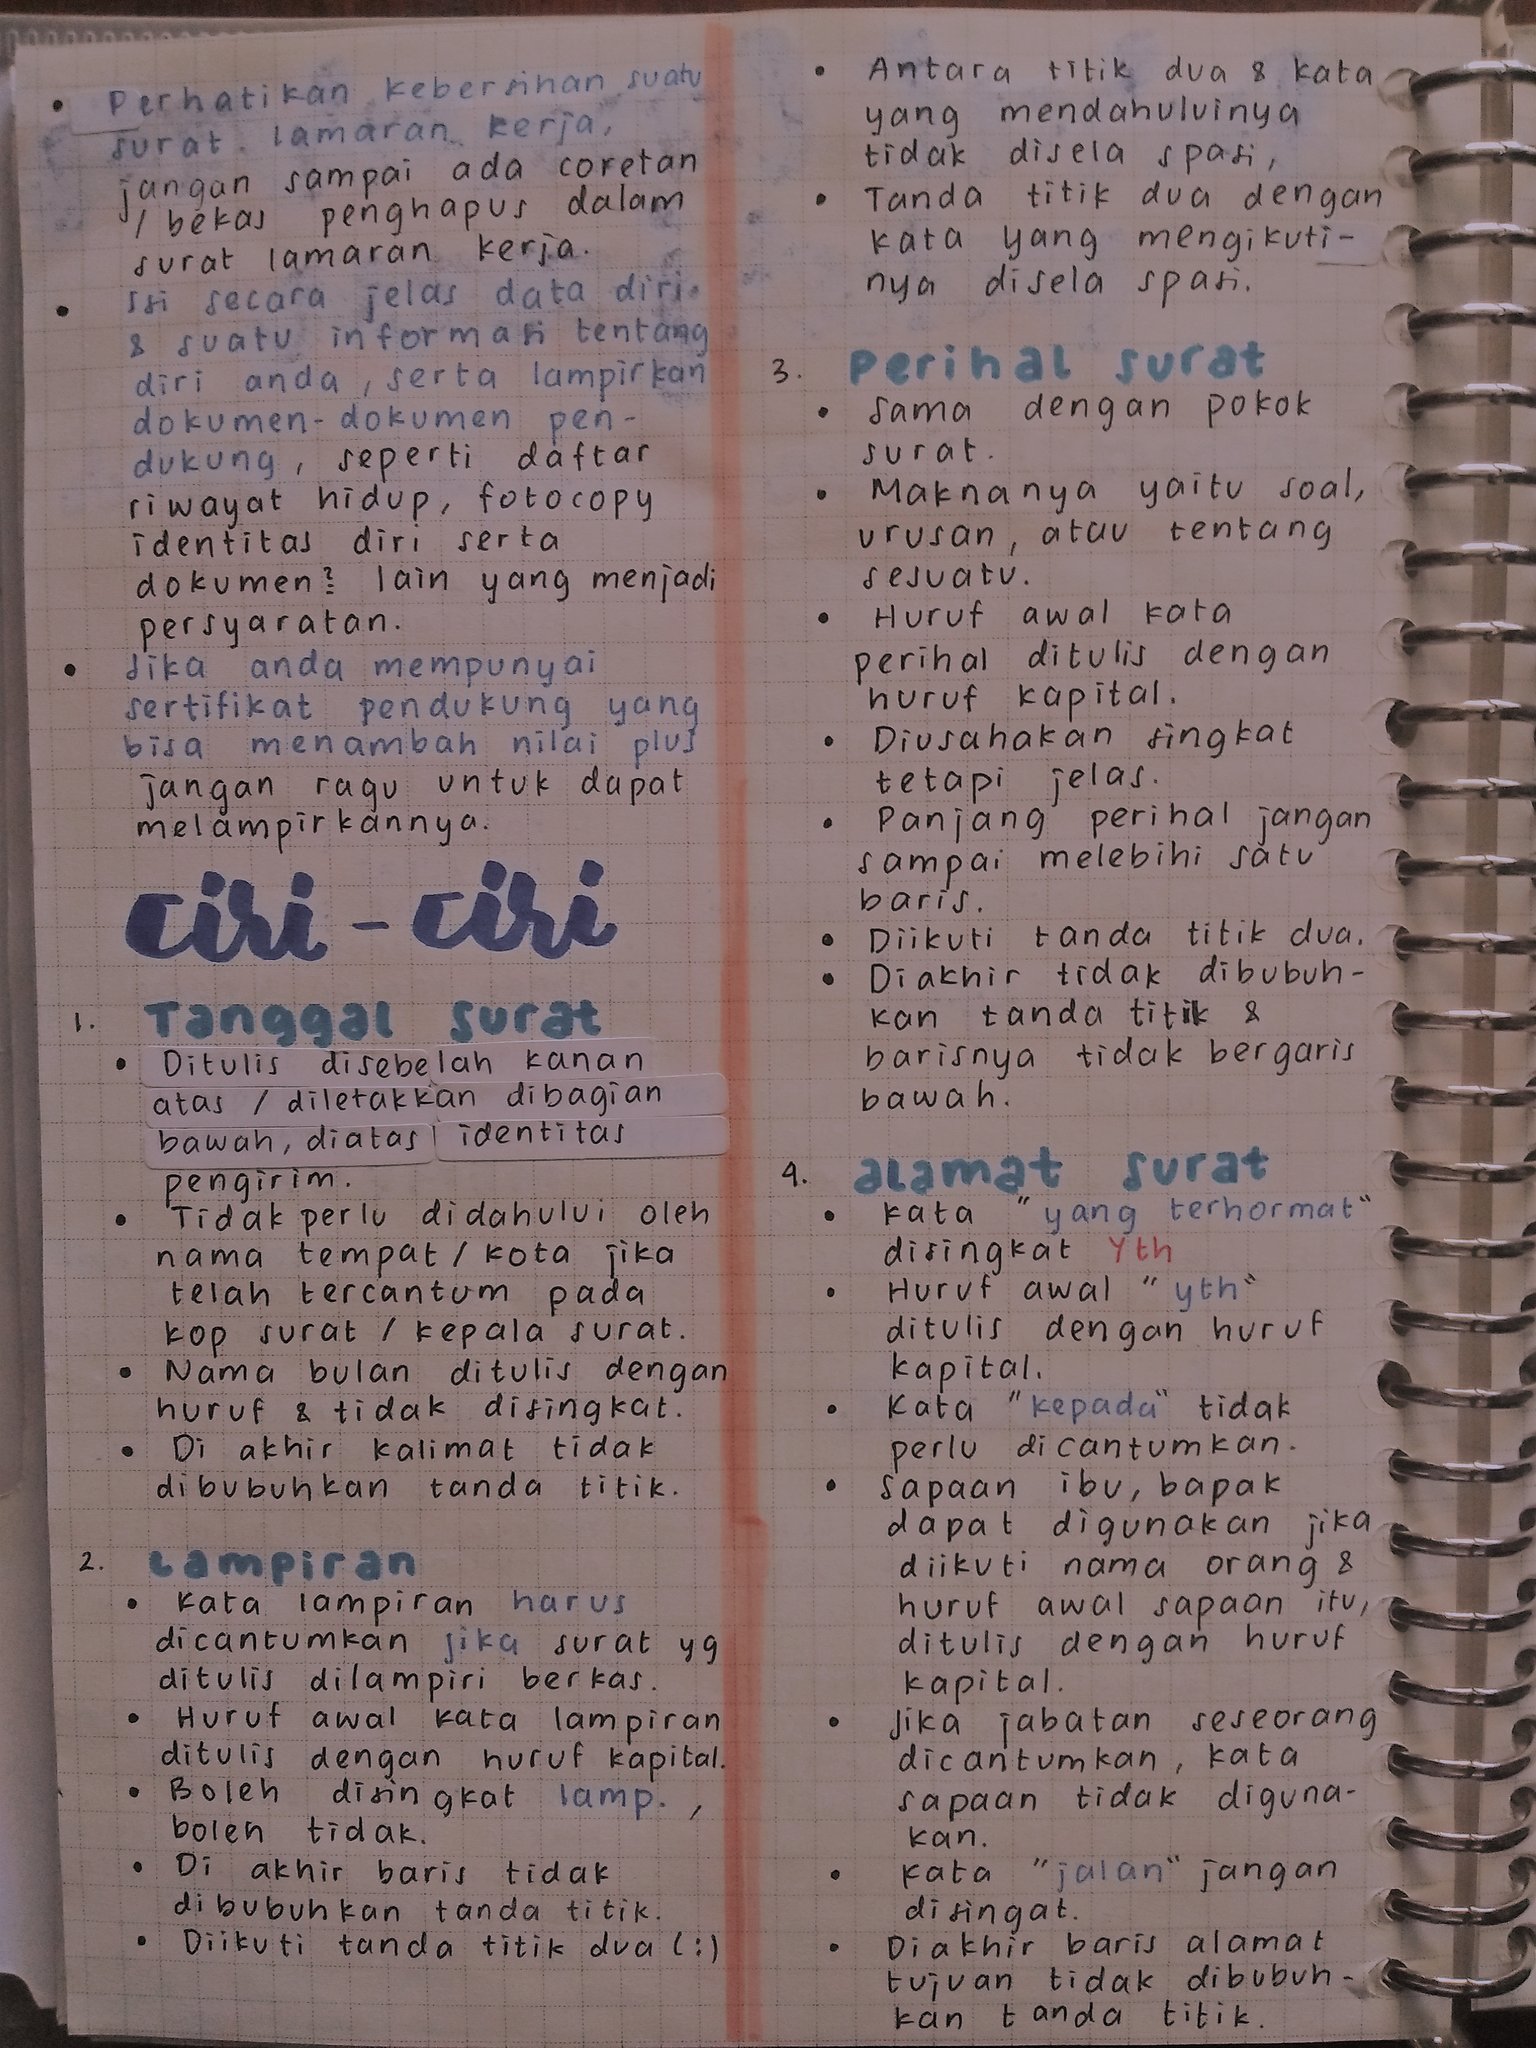 • Perhatikan kebersihan suatu
surat lamaran kerja,
jangan sampai ada coretan
/ bekas penghapus dalam
surat lamaran kerja.
• Isi secara jelas data diri
& suatu informasi tentang
diri anda, serta lampirkan
dokumen-dokumen pen-
dukung, seperti daftar
riwayat hidup, fotocopy
identitas diri serta
dokumen² lain yang menjadi
persyaratan.
• Jika anda mempunyai
sertifikat pendukung yang
bisa menambah nilai plus
jangan ragu untuk dapat
melampirkannya.
Ciri-Ciri
1. Tanggal surat
• Ditulis disebelah kanan
atas / diletakkan dibagian
bawah, diatas identitas
pengirim.
• Tidak perlu didahului oleh
nama tempat / kota jika
telah tercantum pada
kop surat / kepala surat.
• Nama bulan ditulis dengan
huruf & tidak disingkat.
• Di akhir kalimat tidak
dibubuhkan tanda titik.
2. Lampiran
• Kata lampiran harus
dicantumkan jika surat yg
ditulis dilampiri berkas.
• Huruf awal kata lampiran
ditulis dengan huruf kapital.
• Boleh disingkat lamp. ,
boleh tidak.
• Di akhir baris tidak
dibubuhkan tanda titik.
• Diikuti tanda titik dua (:)
• Antara titik dua & kata
yang mendahuluinya
tidak disela spasi,
• Tanda titik dua dengan
kata yang mengikuti-
nya disela spasi.
3. Perihal surat
• Sama dengan pokok
surat.
• Maknanya yaitu soal,
urusan, atau tentang
sesuatu.
• Huruf awal kata
perihal ditulis dengan
huruf kapital.
• Diusahakan singkat
tetapi jelas.
• Panjang perihal jangan
sampai melebihi satu
baris.
• Diikuti tanda titik dua.
• Diakhir tidak dibubuh-
kan tanda titik &
barisnya tidak bergaris
bawah.
4. Alamat surat
• Kata "yang terhormat"
disingkat Yth
• Huruf awal "yth"
ditulis dengan huruf
kapital.
• Kata "kepada" tidak
perlu dicantumkan.
• Sapaan ibu, bapak
dapat digunakan jika
diikuti nama orang &
huruf awal sapaan itu,
ditulis dengan huruf
kapital.
• Jika jabatan seseorang
dicantumkan, kata
sapaan tidak diguna-
kan.
• Kata "jalan" jangan
disingat.
• Diakhir baris alamat
tujuan tidak dibubuh-
kan tanda titik.